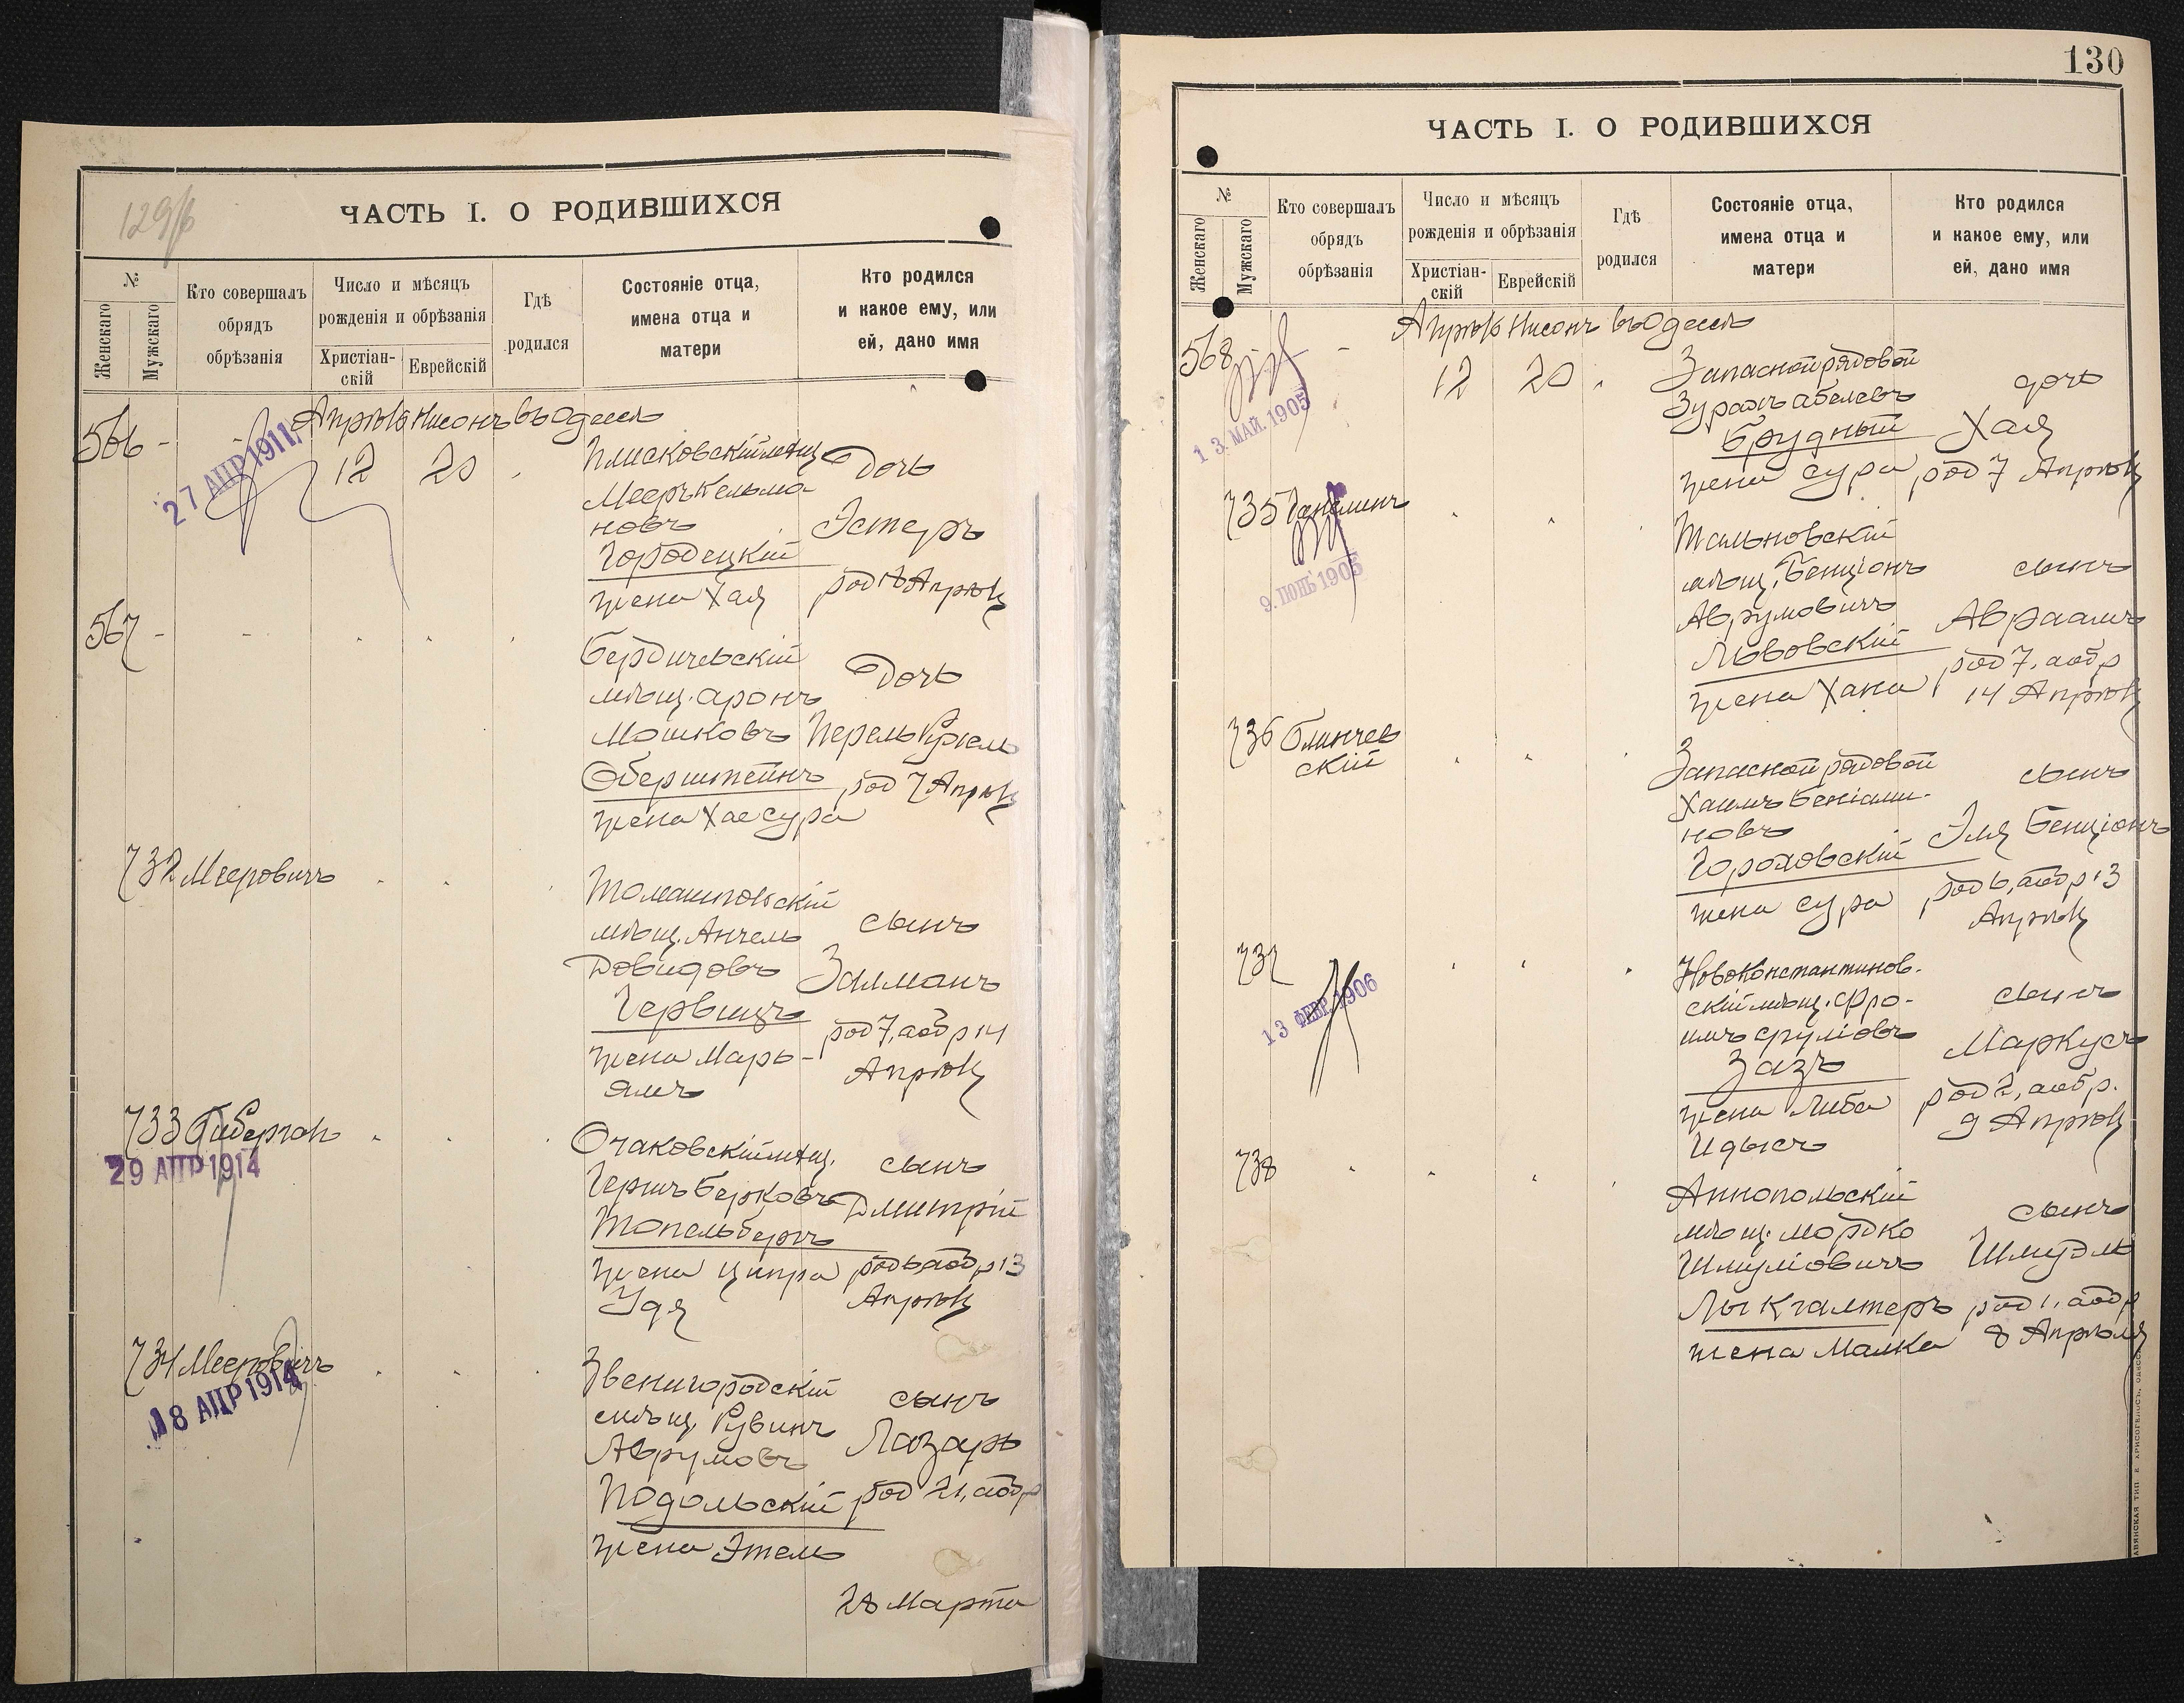 129/б
ЧАСТЬ I. О РОДИВШИХСЯ
№
Женскаго
Мужскаго
Кто совершалъ
обрядъ
обрѣзанія
Число и мѣсяцъ
рожденія и обрѣзанія
Христіан-
скій
Еврейскій
Гдѣ
родился
Состояніе отца,
имена отца и
матери
Кто родился
и какое ему, или
ей, дано имя
Апрѣль Нисонъ въ Одессѣ
566 -
27 АПР 1911
12 20
Плисковскій мѣщ
Мееръ Кельма-
новъ
Городецкій
жена Хая
Дочь
Эстеръ
Апрѣля
567 -
Бердичевскій
мѣщ. Аронъ
Мошковъ
Оберштейнъ
жена Хае Сура
Дочь
Перель Рухель
род 7 Апрѣля
732 Мееровичъ
Томашпольскій
мѣщ. Анчель
Довидовъ
жена Марь-
ямъ
сынъ
Залманъ
род 7, аобр 14
Апрѣля
733
29 АПР 1914
Очаковскій мѣщ.
Гершъ Берковъ
Топельбергъ
жена Ципра
Удя
сынъ
Дмитрій
род 6 аобр 13
Апрѣля
734 Мееровичъ
18 АПР 1914
Звенигородскій
мѣщ. Рувинъ
Аврумовъ
Подольскій
жена Этель
сынъ
Лазарь
род 21, аобр
28 Марта
130
ЧАСТЬ I. О РОДИВШИХСЯ
№
Женскаго
Мужскаго
Кто совершалъ
обрядъ
обрѣзанія
Число и мѣсяцъ
рожденія и обрѣзанія
Христіан-
скій
Еврейскій
Гдѣ
родился
Состояніе отца,
имена отца и
матери
Кто родился
и какое ему, или
ей, дано имя
Апрѣль Нисонъ въ Одессѣ
568 -
13 МАЙ. 1905
12 20
Запасной рядовой
Абелевъ
Брудный
жена Сура
дочь
Хая
род 7 Апрѣля
735
9. ІЮНЬ 1905
Тальновскій
мѣщ. Бенціонъ
Аврумовичъ
Львовскій
жена Хана
сынъ
Авраамъ
род 7, аобр
14 Апрѣля
736 Блинчев
скій
Запасной рядовой
Хаимъ Беніами-
новъ
Гороховскій
жена Сура
сынъ
Эля Бенціонъ
род 6, аобр 13
Апрѣля
737
13 ФЕВР. 1906
Новоконстантинов-
скій мѣщ. Фро-
имъ Сруліовъ
Зазъ
жена Либа
Идысъ
сынъ
Маркусъ
род 2, аобр.
9 Апрѣля
738
Аннопольскій
мѣщ. Мордко
Шмуліовичъ
жена Малка
сынъ
Шмудль
род 1, аобр
8 Апрѣля